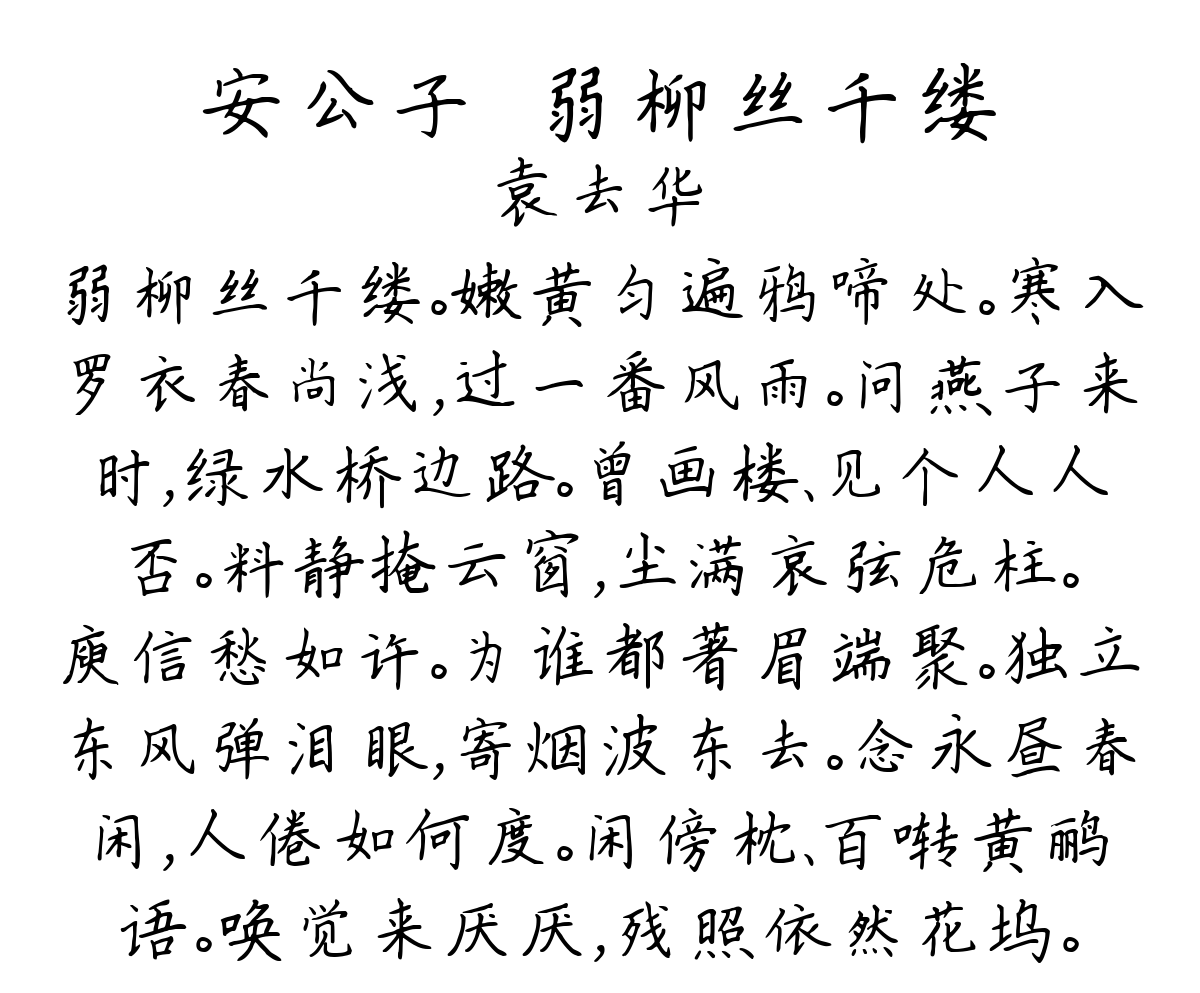 安公子 弱柳丝千缕
袁去华
弱柳丝千缕。嫩黄匀遍鸦啼处。寒入
罗衣春尚浅,过一番风雨。问燕子来
时,绿水桥边路。曾画楼、见个人人
否。料静掩云窗,尘满哀弦危柱。
庾信愁如许。为谁都著眉端聚。独立
东风弹泪眼,寄烟波东去。念永昼春
闲,人倦如何度。闲傍枕、百啭黄鹂
语。唤觉来厌厌,残照依然花坞。